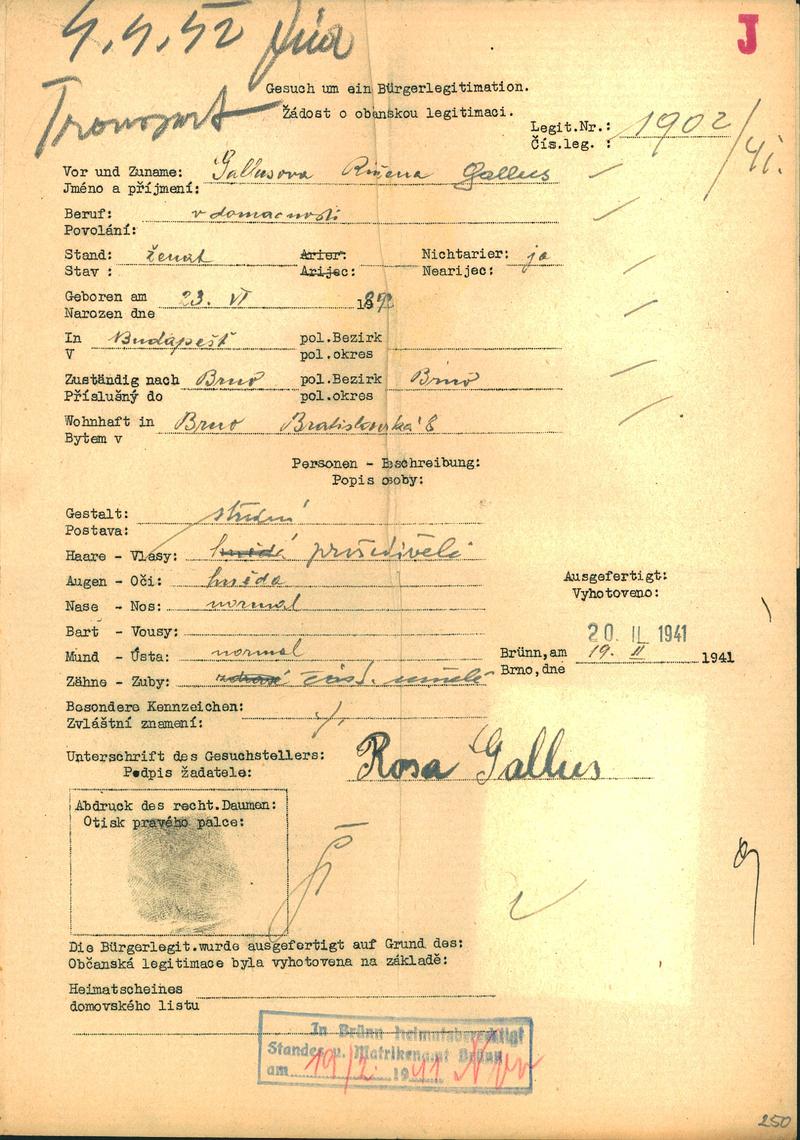 4.4.42
J
Transport
Gesuch um ein Bürgerlegitimation.
Žádost o obanskou legitimaci.
Legit.Nr.: 1902/41.
Čís.leg. :
Vor und Zuname: Gallusova Růžena Gallus
Jméno a příjmení:
Beruf: v domacnosti
Povolání:
Stand: ženat Arier: Nichtarier: ja
Stav : Arijec: Nearijec:
Geboren am 23. VI 1892
Narozen dne
In Budapešť pol.Bezirk
V pol.okres
Zuständig nach Brno pol.Bezirk Brno
Příslušný do pol.okres
Wohnhaft in Brno Bratislavská 8
Bytem v
Personen - Beschreibung:
Popis osoby:
Gestalt: střední
Postava:
Haare - Vlasy: hnědá prošedivělé
Augen - Oči: hněda
Nase - Nos: normal
Bart - Vousy:
Mund - Ústa: normal
Zähne - Zuby: zdravé část. umělé
Ausgefertigt:
Vyhotoveno:
20. II. 1941
Brünn,am 19. II 1941
Brno,dne
Besondere Kennzeichen:
Zvláštní znamení:
Unterschrift des Gesuchstellers: Rosa Gallus
Podpis žadatele:
Abdruck des recht.Daumen:
Otisk pravého palce:
Die Bürgerlegit.wurde ausgefertigt auf Grund des:
Občanská legitimace byla vyhotovena na základě:
Heimatscheines
domovského listu
In Brünn heimatsberechtigt
Standes u. Matrikenamt Brünn
am 19/2. 1941
250